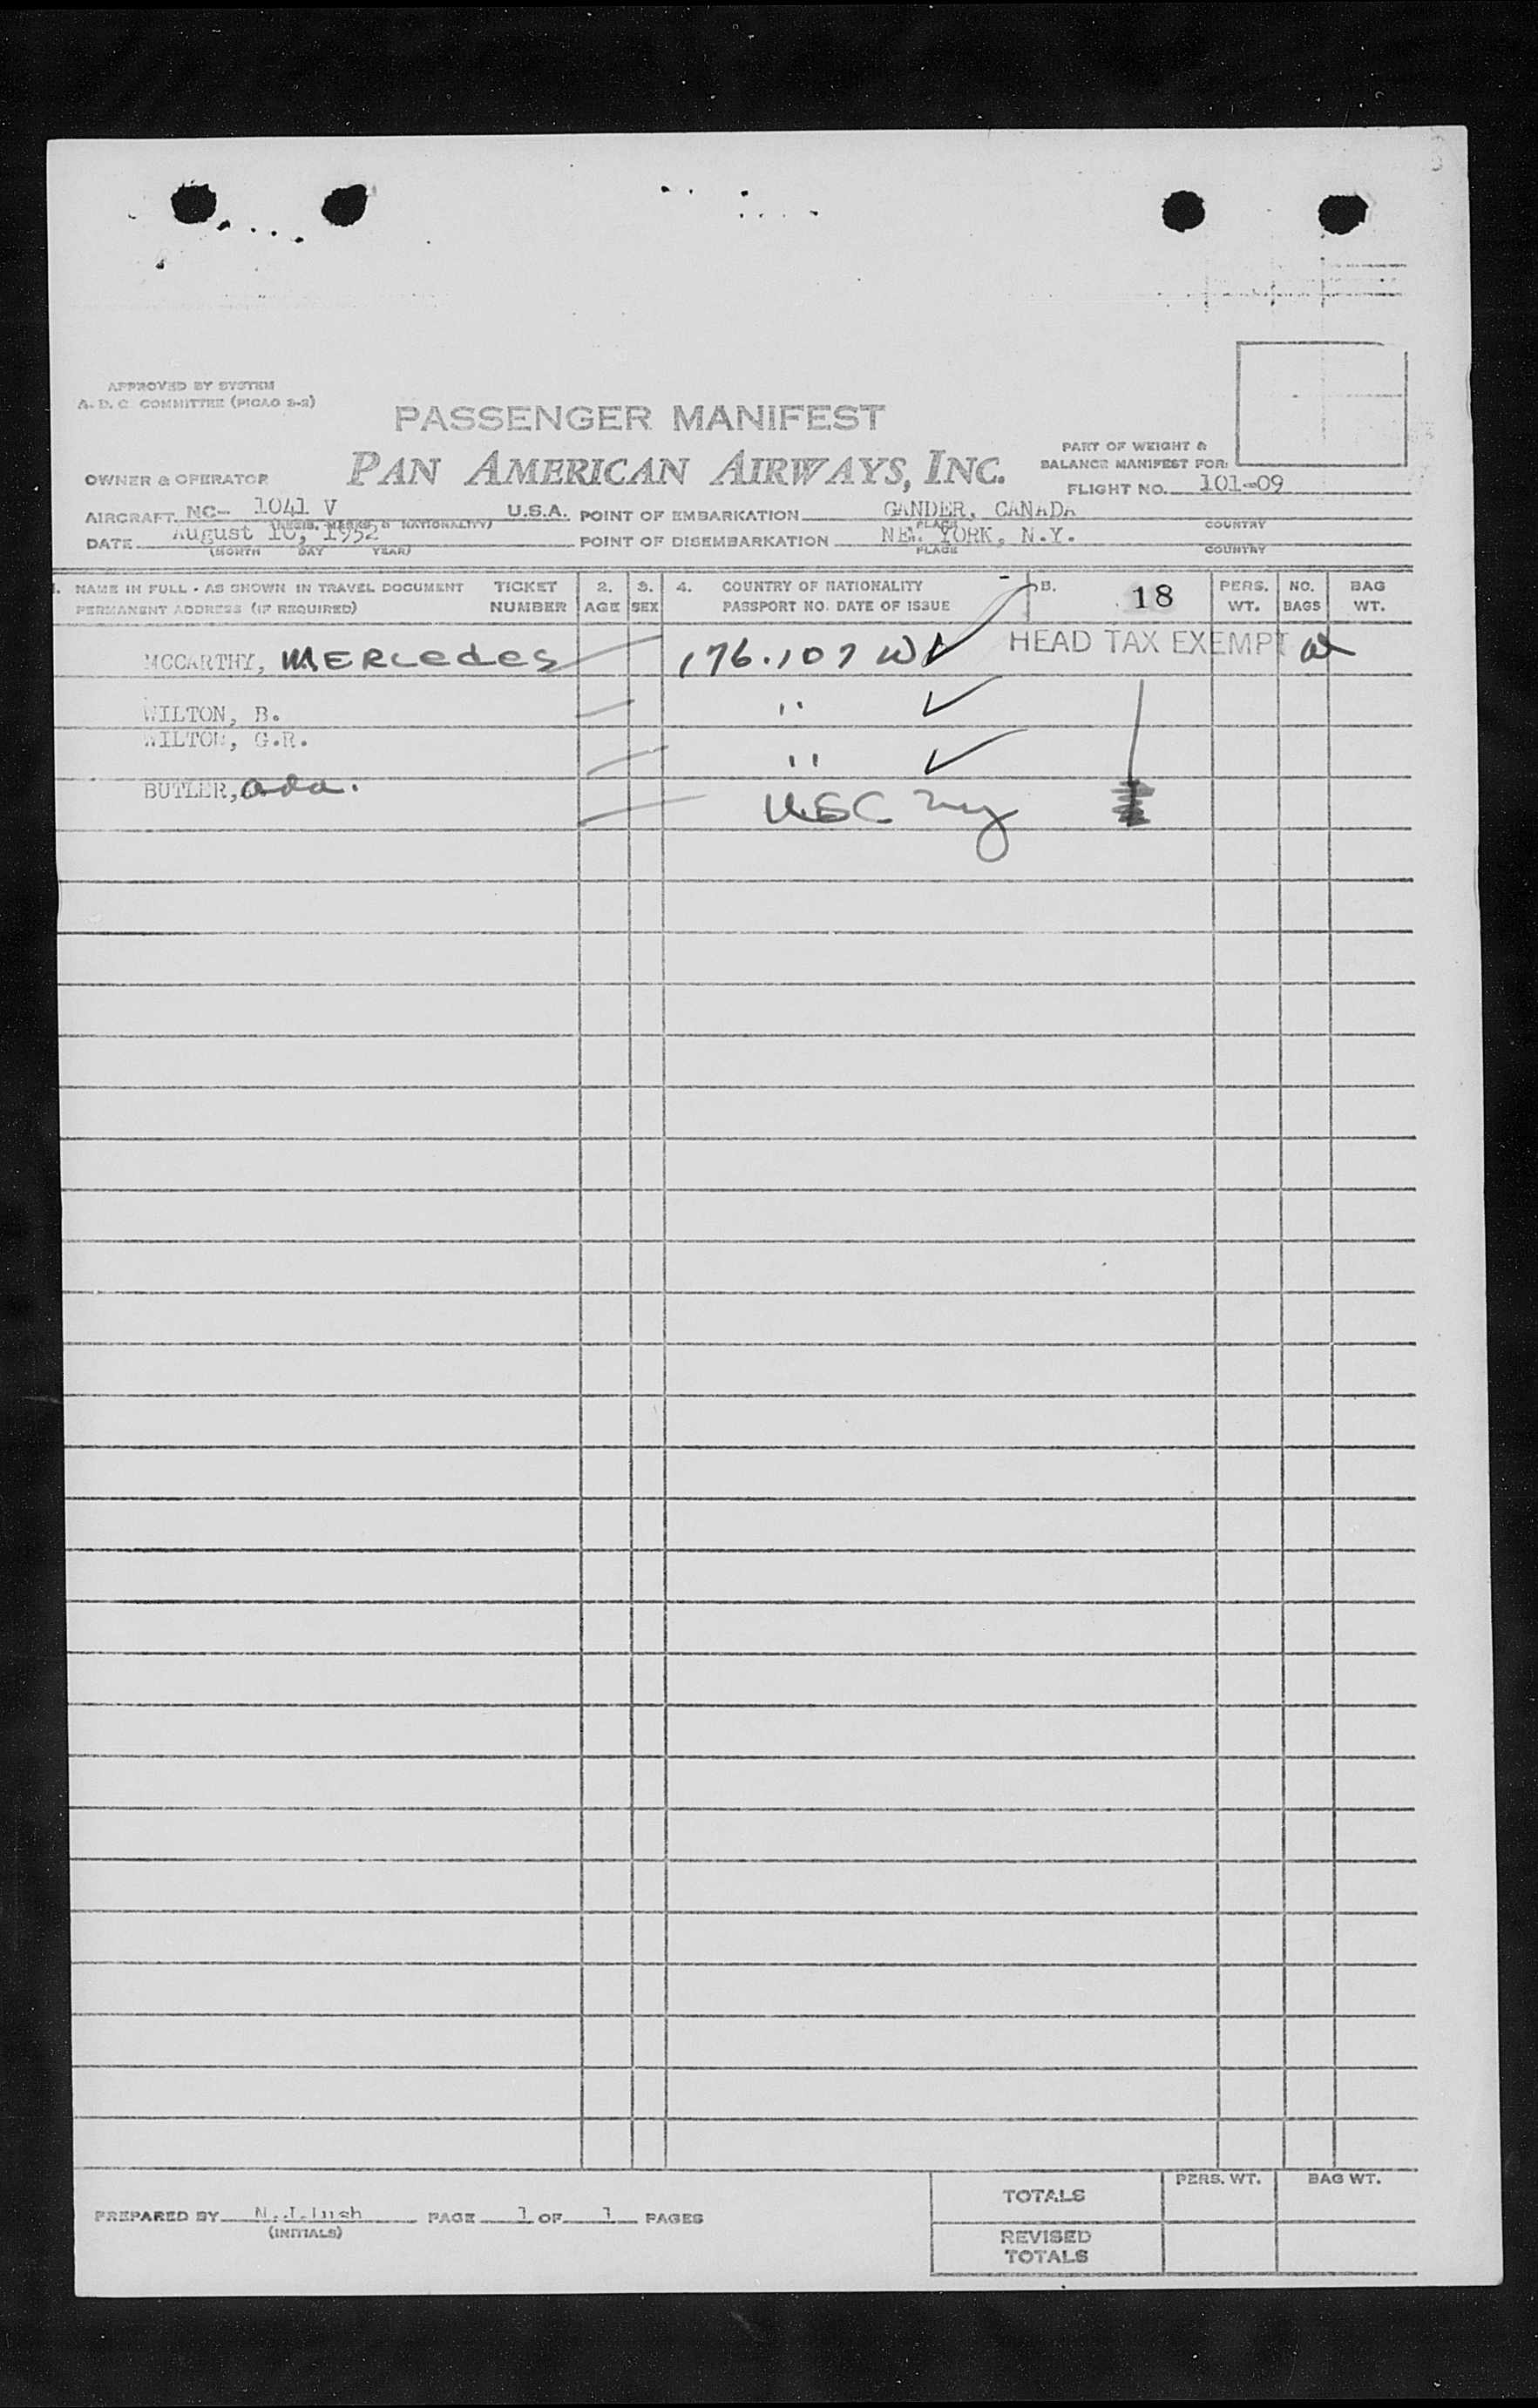 APPROVED BY SYSTEM
A. D. C. COMMITTEE (PICAO 2-2)
PASSENGER MANIFEST
PAN AMERICAN AIRWAYS, INC.
OWNER & OPERATOR
PART OF WEIGHT &
BALANCE MANIFEST FOR:
FLIGHT NO. 101-09
AIRCRAFT NC- 1041 V U.S.A. POINT OF EMBARKATION GANDER, CANADA
(REGIS. MARKS & NATIONALITY) PLACE COUNTRY
DATE August 10, 1952 POINT OF DISEMBARKATION NEW YORK, N.Y.
(MONTH DAY YEAR) PLACE COUNTRY
1. NAME IN FULL - AS SHOWN IN TRAVEL DOCUMENT TICKET 2. 3. 4. COUNTRY OF NATIONALITY B. 18 PERS. NO. BAG
PERMANENT ADDRESS (IF REQUIRED) NUMBER AGE SEX PASSPORT NO. DATE OF ISSUE WT. BAGS WT.
MCCARTHY, MERCedes 176.107 W HEAD TAX EXEMPT
WILTON, B. "
WILTON, G.R. "
BUTLER, ada. USC ny
PREPARED BY N.J.Lush PAGE 1 OF 1 PAGES
(INITIALS)
TOTALS PERS. WT. BAG WT.
REVISED
TOTALS